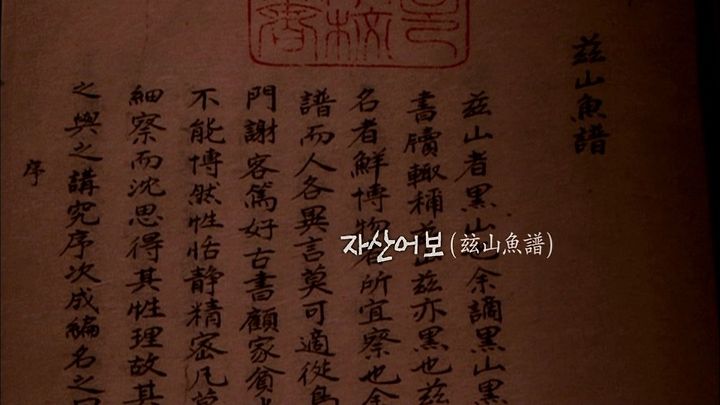 玆山魚譜
玆山者黑山也余謫黑山黑
書牘輒稱玆山玆亦黑也玆
名者鮮博物者所宜察也余
譜而人各異言莫可適從島
門謝客篤好古書顧家貧
不能博然性恬靜精密凡草
細察而沈思得其性理故其
之與之講究序次成編名之曰
序
자산어보(玆山魚譜)